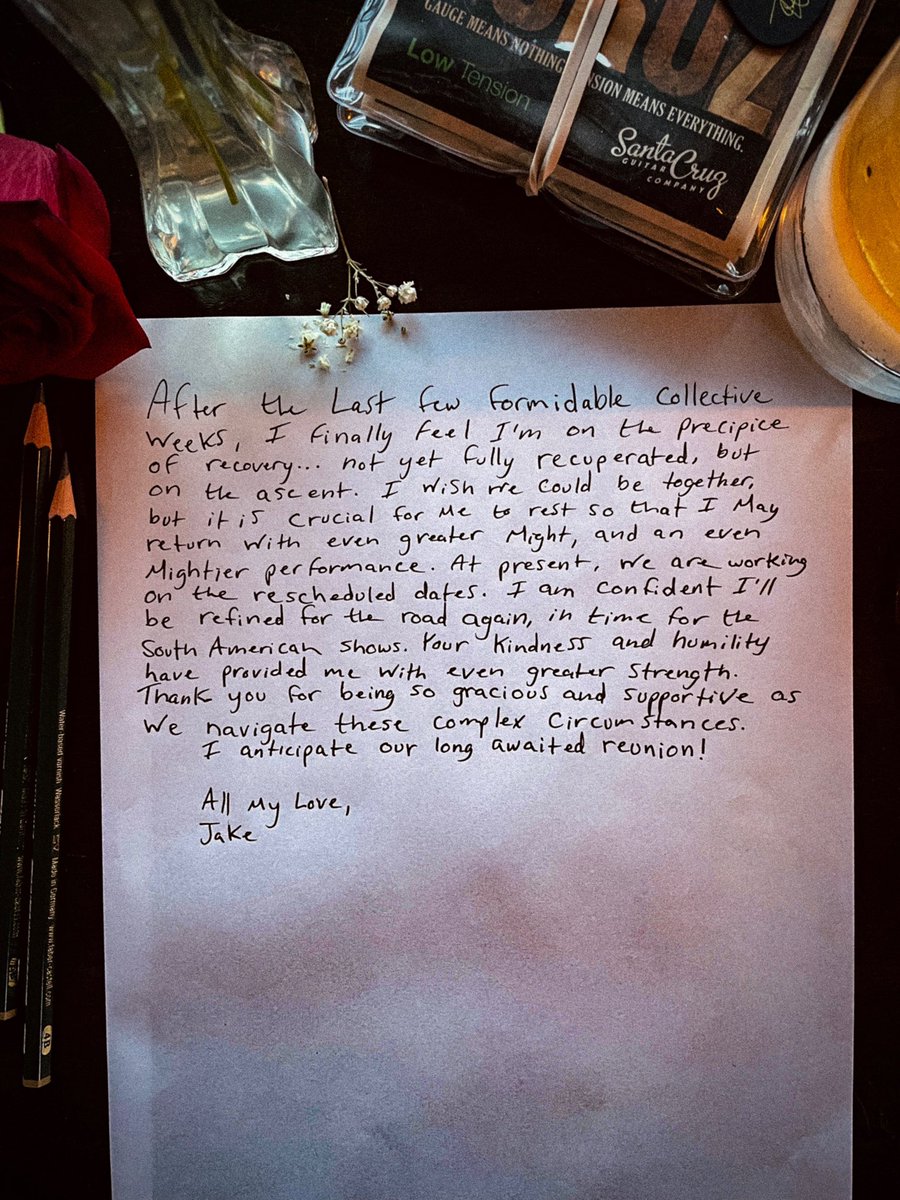 CRUZ
GAUGE MEANS NOTHING, TENSION MEANS EVERYTHING.
Low Tension
Santa Cruz
GUITAR
COMPANY
After the Last few formidable Collective
Weeks, I finally feel I'm on the precipice
of recovery... not yet fully recuperated, but
on the ascent. I wish we could be together,
but it is crucial for Me to rest so that I May
return with even greater Might, and an even
Mightier performance. At present, we are working
on the rescheduled dates. I am confident I'll
be refined for the road again, in time for the
South American shows. Your kindness and humility
have provided me with even greater strength.
Thank you for being so gracious and supportive as
We navigate these complex Circumstances.
I anticipate our long awaited reunion!
All My Love,
Jake
Water-based varnish. Wasserlack.
Made in Germany
www.faber-castell.com
4B